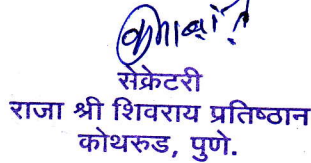 सेक्रेटरी
राजा श्री शिवराय प्रतिष्ठान
कोथरुड, पुणे.